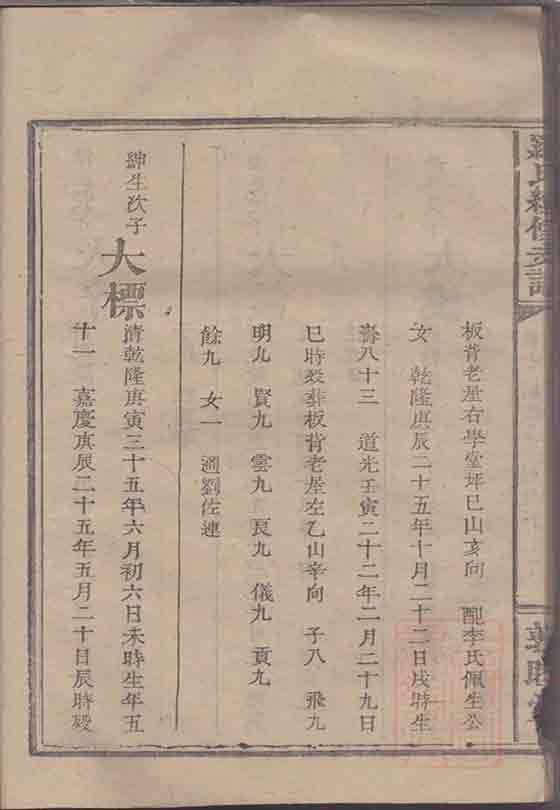 氏續修支譜
板背老屋右學堂坪巳山亥向　配李氏佩生公
女　乾隆庚辰二十五年十月二十二日戌時生
壽八十三　道光壬寅二十二年二月二十九日
巳時歿葬板背老屋左乙山辛向　子八　飛九
明九　賢九　雲九　良九　儀九　貢九
餘九　女一　適劉佐連
紳生次子
大標
清乾隆庚寅三十五年六月初六日未時生年五
十一　嘉慶庚辰二十五年五月二十日辰時歿